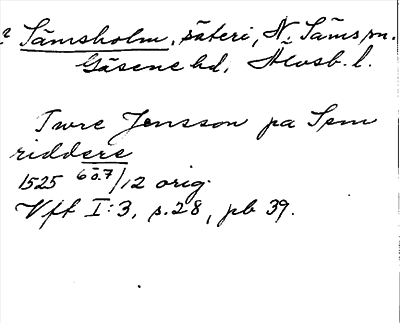 ? Sämsholm, säteri, N. Säms sn.
Gäsene hd, Älvsb. l.
Twre Jensson pa Sem
riddere
1525 6ō.7/12 orig.
Vff I:3, s.28, pb 39.